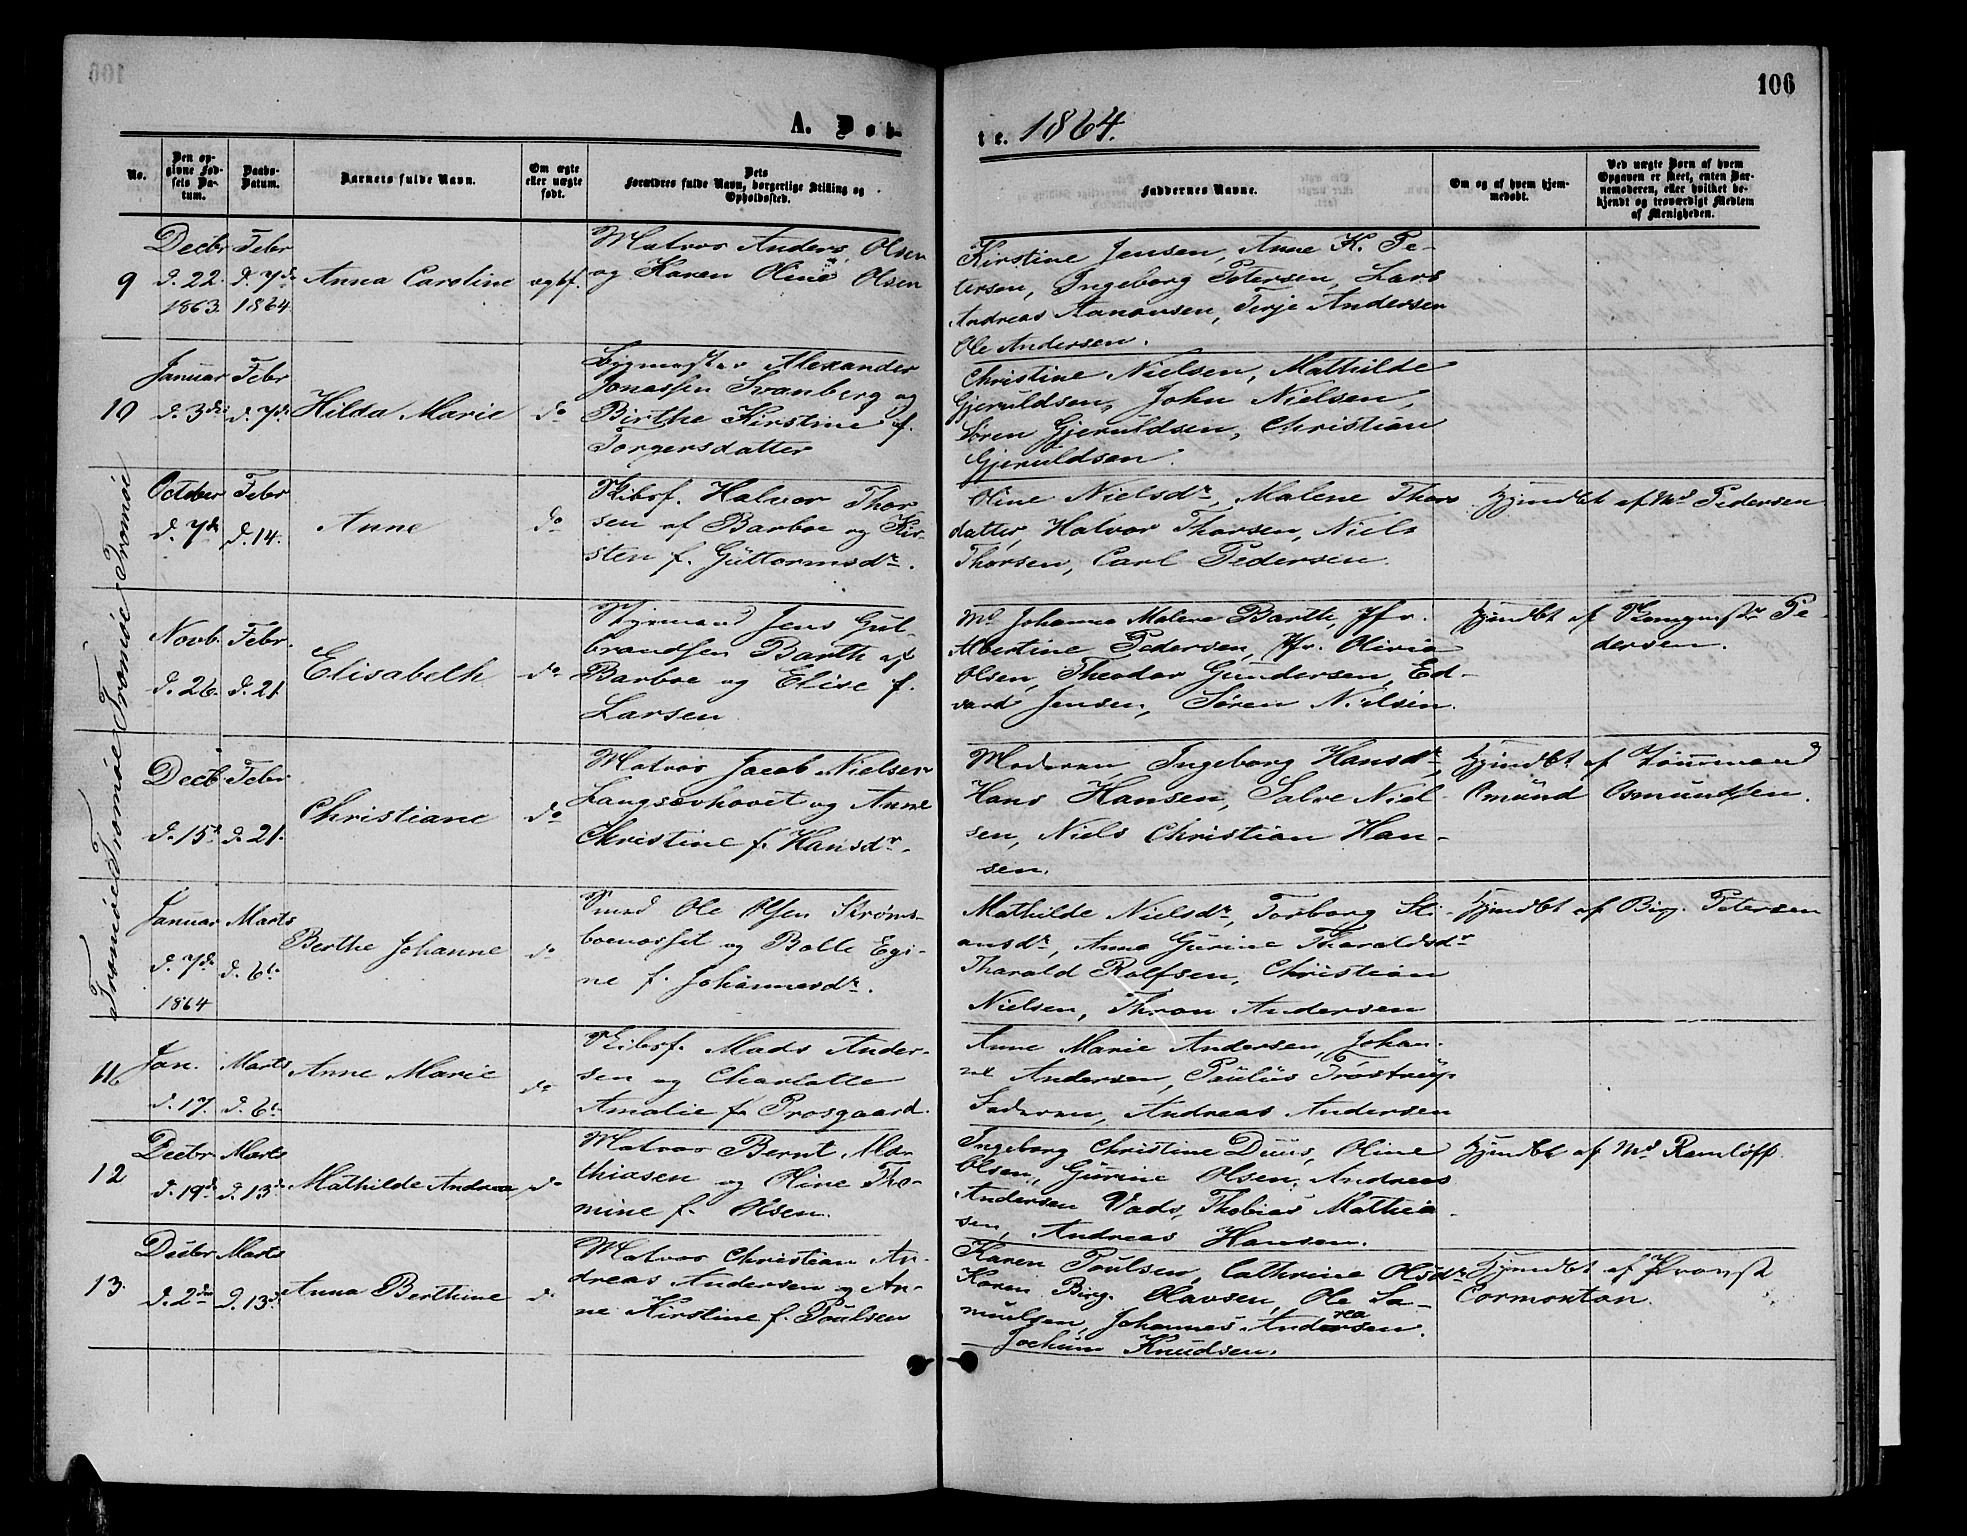 106
A. Døb-
te. 1864.
No.
Den op-
givne Fød-
sels Da-
tum.
Daabs-
Datum.
Barnets fulde Navn.
Om ægte
eller uægte
født.
Dets
Forældres fulde Navn, borgerlige Stilling og
Opholdssted.
Faddernes Navne.
Om og af hvem hjem-
medøbt.
Ved uægte Børn af hvem
Opgaven er skeet, enten Bar-
nemoderen, eller hvilket be-
kjendt og troværdigt Medlem
af Menigheden.
9
Decbr
d. 22.
1863.
Febr
d. 7de
1864.
Anna Caroline
ægtf.
Matros Anders Olsen
og Karen Oline Olsen
Kirstine Jensen, Anne K. Pe-
tersen, Ingeborg Petersen, Lars
Andreas Aanonsen, Terje Andersen
Ole Andersen.
10
Januar
d. 3die
Febr
d. 7de
Hilda Marie
do
Bygmester Alexander
Jonassen Svanberg og
Birthe Kirstine f.
Torgersdatter
Christine Nielsen, Mathilde
Gjeruldsen, John Nielsen,
Søren Gjeruldsen, Christian
Gjeruldsen.
Tromøe
October
d. 7de
Febr
d. 14.
Anne
do
Skibsf. Halvor Thor
sen af Barboe og Kir-
sten f. Guttormsdr.
Oline Nielsdr, Malene Thors
datter, Halvor Thorsen, Niels
Thorsen, Carl Pedersen.
Hjmdbt af Md Pedersen
Tromøe
Novb.
d. 26.
Febr.
d. 21
Elisabeth
do
Styrmand Jens Gul-
brandsen Barth af
Barboe og Elise f.
Larsen
Md Johanna Malene Barth, Jfr.
Albertine Pedersen, Jfr. Olivia
Olsen, Theodor Gundersen, Ed-
vard Jensen, Søren Nielsen.
Hjmdbt af Pe-
dersen.
Tromøe
Decb.
d. 15de
Febr
d. 21.
Christiane
do
Matros Jacob Nielsen
Langsævhovet og Anne
Christine f. Hansdr.
Moderen, Ingeborg Hansdr,
Hans Hansen, Salve Niel-
sen, Niels Christian Han-
sen.
Hjmdbt af Tømmermand
Omund Osmundsen.
Tromøe
Januar
d. 7de
1864
Marts
d. 6te
Berthe Johanne
do
Smed Ole Olsen Strøms-
boenosset og Bolle Egi-
ne f. Johannesdr.
Mathilde Nielsdr, Torborg Sti-
ansdr, Anne Gurine Tharaldsdr
Tharald Rolfsen, Christian
Nielsen, Thron Andersen
Hjmdbt af Birg. Petersen
11
Jan.
d. 17.
Marts
d. 6te
Anne Marie
do
Skibsf. Mads Ander-
sen og Charlotte
Amalie f. Prosgaard.
Anne Marie Andersen, Johan-
ne Andersen, Paulus Trostrup
Faderen, Andreas Andersen
12
Decbr
d. 19de
Marts
d. 13de
Mathilde Andrea
do
Matros Bernt Ma-
thiasen og Oline Tho-
mine f. Olsen.
Ingeborg Christine Duus, Oline
Olsen, Gurine Olsen, Andreas
Andersen Vads, Thobias Mathia-
sen, Andreas Hansen.
Hjmdbt af Md Ramløff.
13.
Decbr
d. 2den
Marts
d. 13de
Anna Berthine
do
Matros Christian An-
dreas Andersen og An-
ne Kirstine f. Poulsen
Karen Poulsen, Cathrine Olsdr
Karen Birg. Olavsen, Ole Sa-
muelsen, Johannes Andersen.
Jochum Knudsen.
Hjmdbt af Provst
Cormontan.